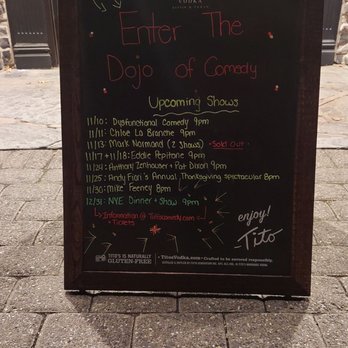 VODKA
Enter The
Dojo of Comedy
Upcoming Shows
11/10: Dysfunctional Comedy 9pm
11/11: Chloe La Branche 9pm
11/13: Mark Normand (2 Shows) *Sold Out*
11/17 + 11/18: Eddie Pepitone 9pm
11/24: Anthony Zenhauser + Pat Dixon 9pm
11/25: Andy Fiori's Annual Thanksgiving Spectacular 8pm
11/30: Mike Feeney 8pm
12/31: NYE Dinner + Show 9pm
Information @ Titocomedy.com
+ Tickets
enjoy!
Tito
TITO'S IS NATURALLY
GLUTEN-FREE
• TitosVodka.com • Crafted to be savored responsibly.